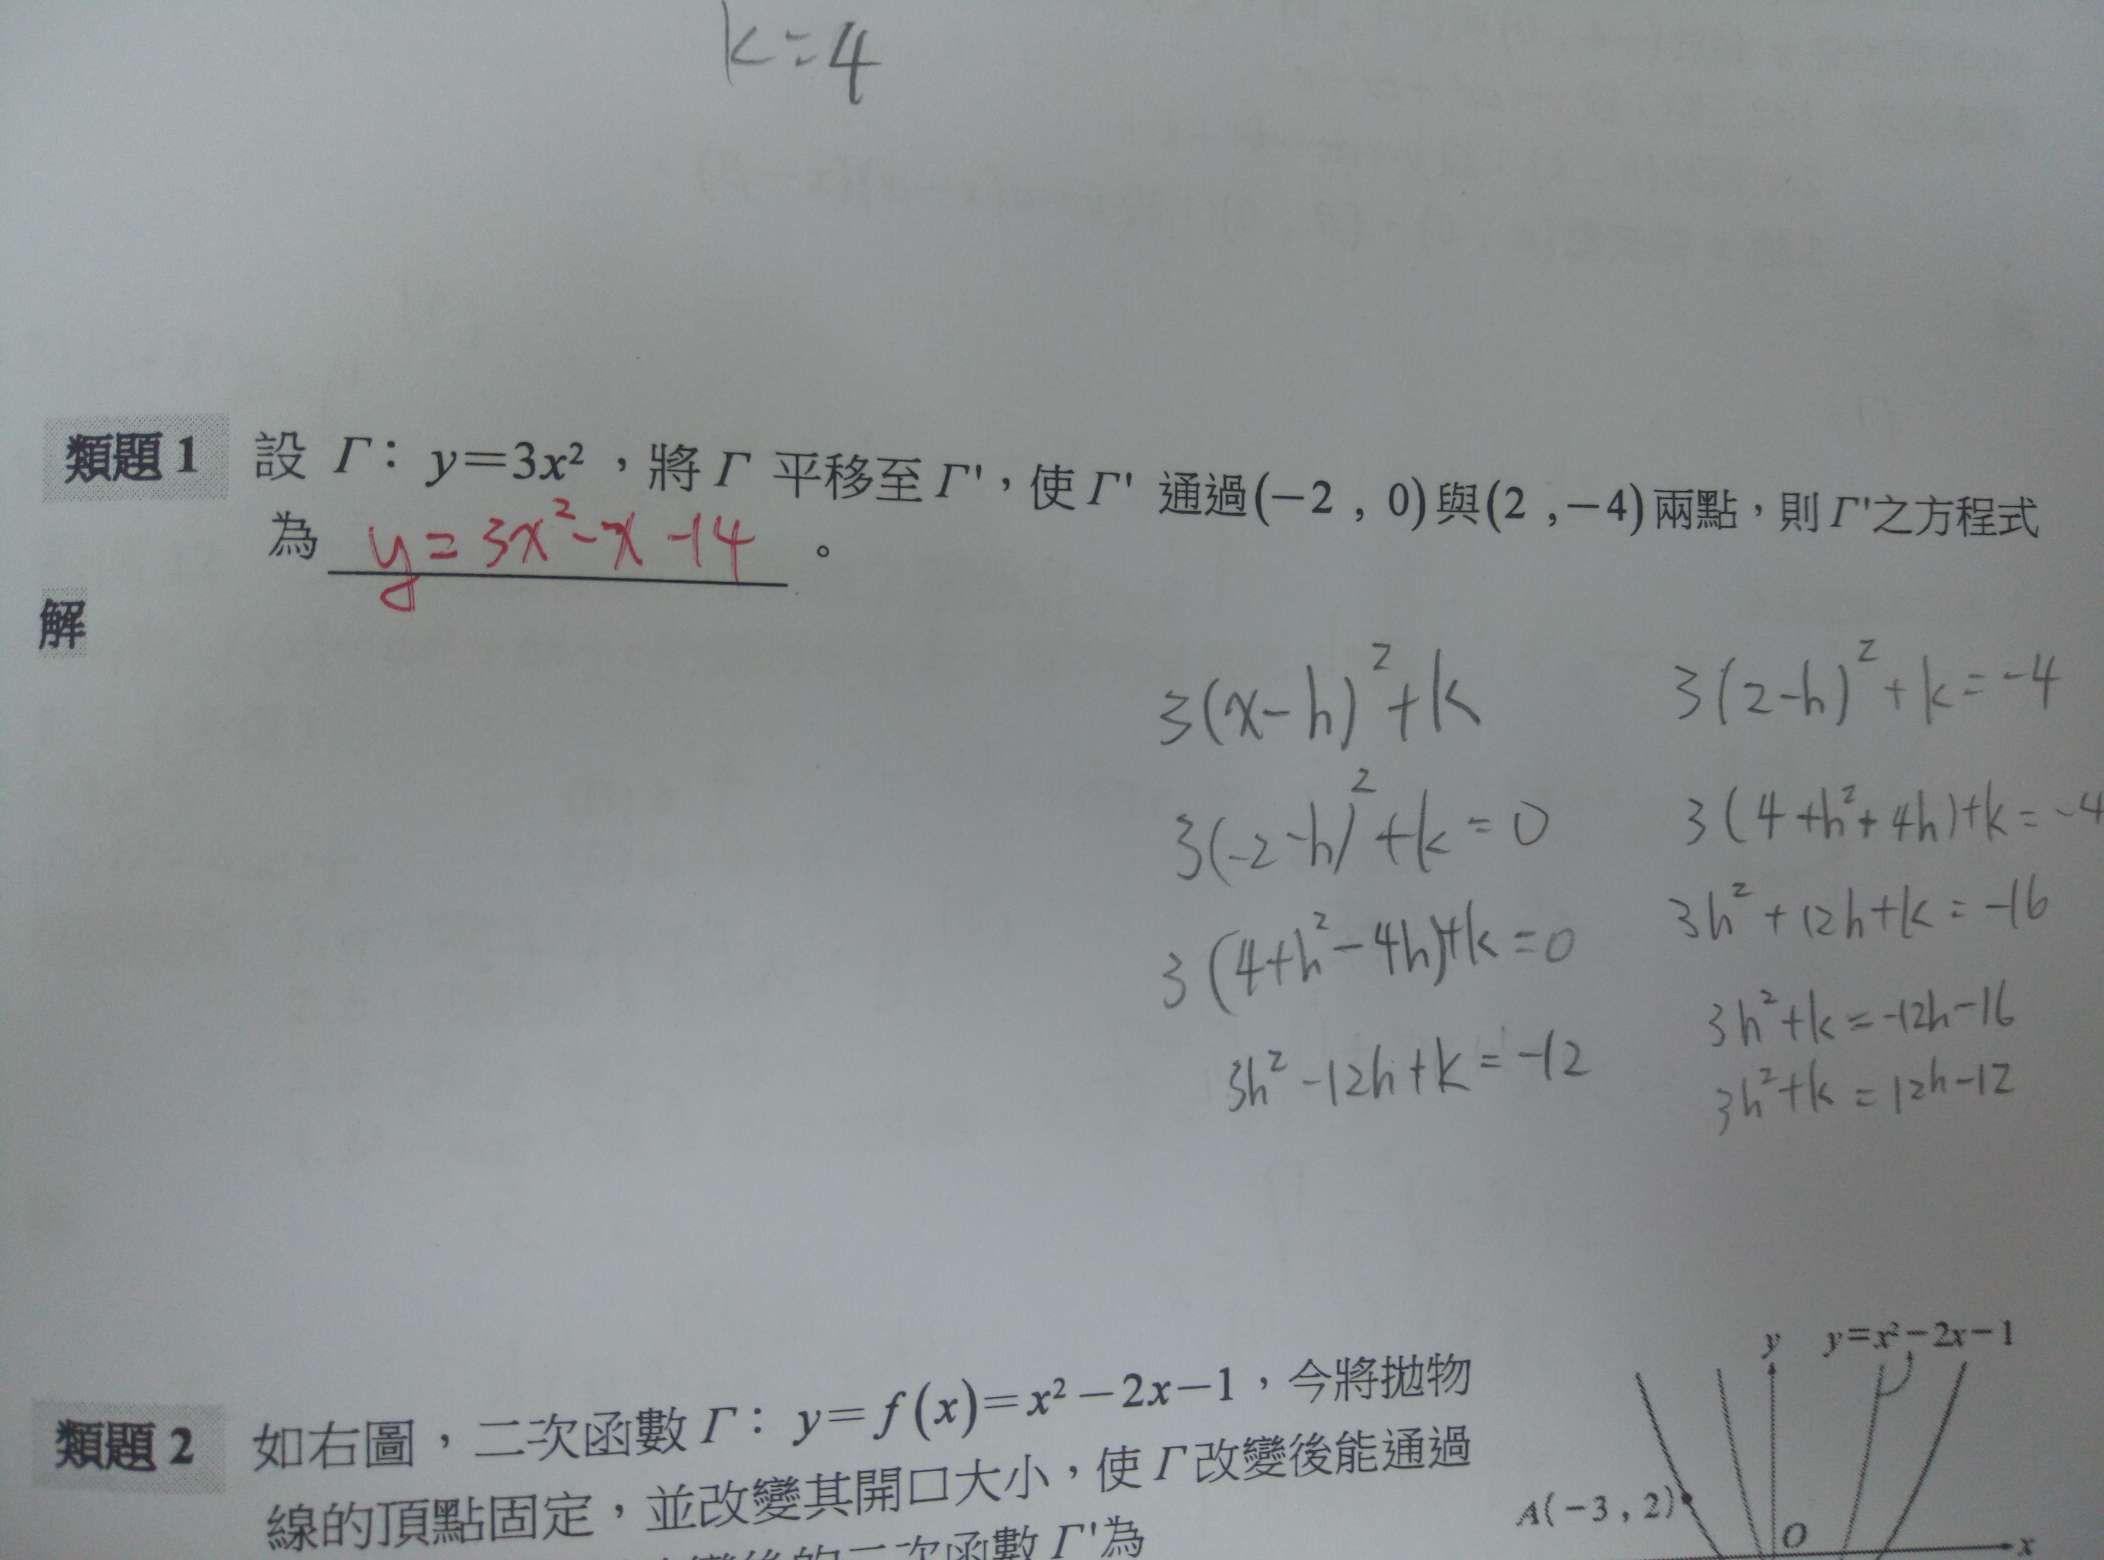 k=4
類題1 設 Γ：y=3x²，將 Γ 平移至 Γ'，使 Γ' 通過(−2，0)與(2，−4)兩點，則 Γ'之方程式
為 y=3x²-x-14 。
解
3(x-h)²+k
3(-2-h)²+k=0
3(4+h²-4h)+k=0
3h²-12h+k=-12
3(2-h)²+k=-4
3(4+h²+4h)+k=-4
3h²+12h+k=-16
3h²+k=-12h-16
3h²+k=12h-12
類題2 如右圖，二次函數 Γ：y=f(x)=x²−2x−1，今將拋物
線的頂點固定，並改變其開口大小，使 Γ 改變後能通過
後的二次函數 Γ'為
y y=x²−2x−1
A(−3，2)
O x